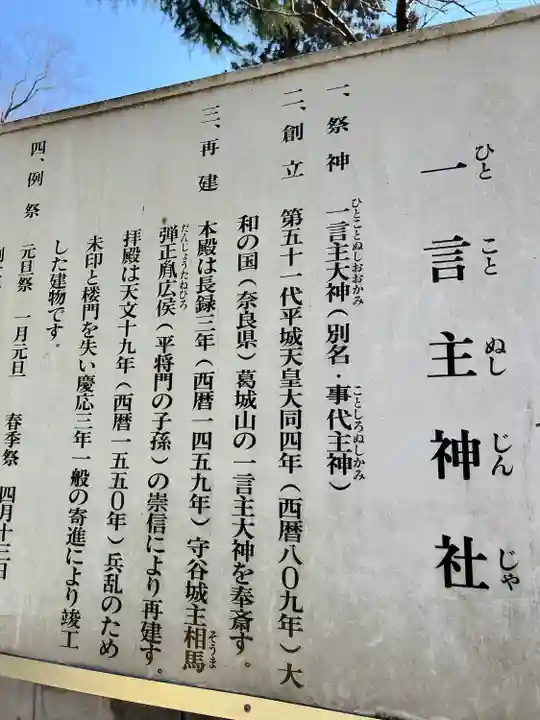 一言主神社
ひとことぬしじんじゃ
一、祭神　一言主大神（別名・事代主神）
ひとことぬしおおかみ　ことしろぬしかみ
二、創立　第五十一代平城天皇大同四年（西暦八〇九年）大
和の国（奈良県）葛城山の一言主大神を奉斎す。
三、再建　本殿は長録三年（西暦一四五九年）守谷城主相馬
そうま
弾正胤広侯（平将門の子孫）の崇信により再建す。
だんしょうたねひろ
拝殿は天文十九年（西暦一五五〇年）兵乱のため
未印と楼門を失い慶応三年一般の寄進により竣工
した建物です。
四、例祭　元旦祭　一月元旦　春季祭　四月十三日